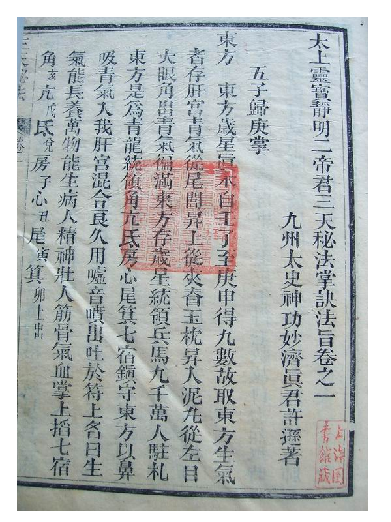 太上靈寶靜明二帝君三天秘法掌訣法旨卷之一
九州太史神功妙濟眞君許遜著
五子歸庚掌
東方 東方歲星眞 自壬子至庚申得九數故取東方生氣
者存肝宮靑氣從尾閭昇上從夾脊玉枕昇入泥丸從左目
大眼角出靑氣徧滿東方存歲星統領兵馬九千萬人駐札
東方是為青龍統領角亢氐房心尾箕七宿鎮守東方以鼻
吸青氣入我肝宮混合良久用噓音噴出吐於符上名曰生
氣能長養萬物能生病人精神壯人筋骨氣血掌上掐七宿
角亥亢 氐 房子心丑尾寅箕卯上出